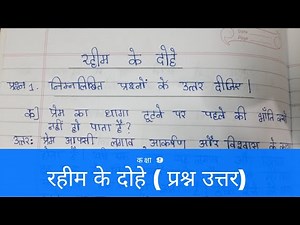 रहीम के दोहे
प्रश्न 1. निम्नलिखित प्रश्नों के उत्तर दीजिए।
क) प्रेम का धागा टूटने पर पहले की भाँति क्यों
नहीं हो पाता है?
उत्तर: प्रेम आपसी लगाव आकर्षण और विश्वास के
कक्षा 9
रहीम के दोहे ( प्रश्न उत्तर)